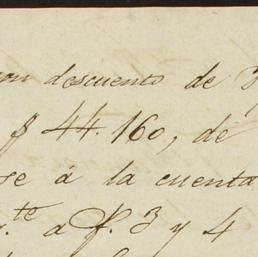 con descuento de 3
$ 44.160, de
se á la cuenta
te a f. 3 y 4